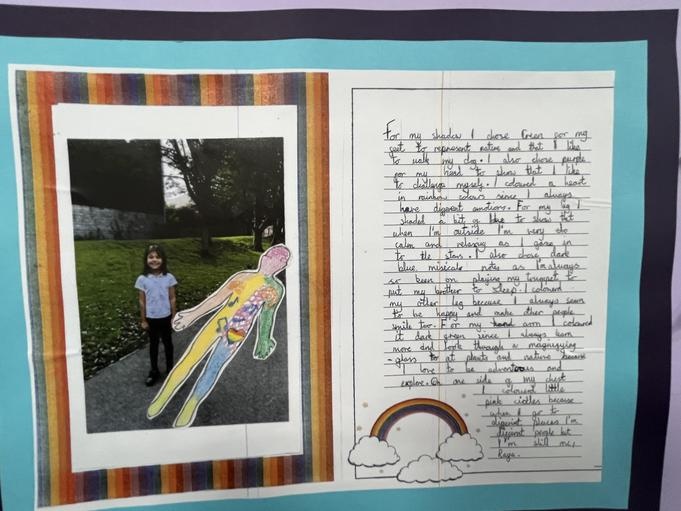 For my shadow I chose Green for my
feet to represent native and that I like
to walk my dog. I also chose purple
for my hand to show that I like
to challenge myself. I coloured a heart
in rainbow colours since I always
have diferent emotions. For my leg I
shaded a bit of blue to show that
when I'm outside I'm very
calm and relaxing as I gaze in
to the stars. I also chose dark
blue misicale notes as I'm always
so keen on playing my trumpet to
put my brother to sleep. I coloured
my other leg because I always seem
to be happy and make other people
smile too. For my arm I coloured
it dark green since I always learn
more and look through a magnifying
-glass to at plants and nature because
I love to be adventerous and
explore. On one side of my chest
I coloured little
pink circles because
when I go to
diferent places I'm
diferent people but
I'm still me,
Raya.